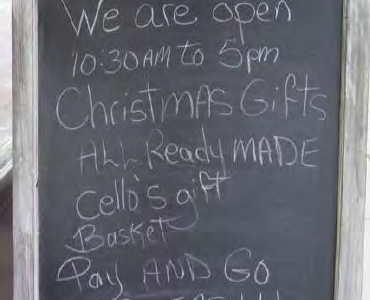 We are open
10:30AM to 5pm
ChristMAS Gifts
ALL Ready MADE
Cello's gift
Basket
Pay AND GO